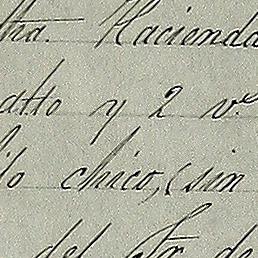 tra. Hacienda
alto y 2 v.s
ilo chico, (sin
del Sr. de